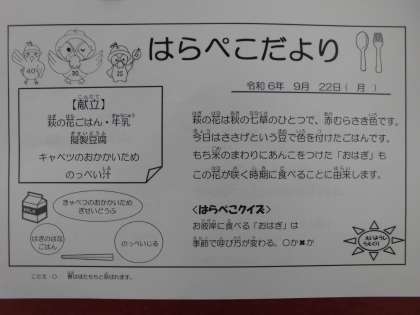 はらぺこだより
令和6年 9月 22日（月）
【献立】
萩の花ごはん・牛乳
擬製豆腐
キャベツのおかかいため
のっぺい汁
萩の花は秋の七草のひとつで、赤むらさき色です。
今日はささげという豆で色を付けたごはんです。
もち米のまわりにあんこをつけた「おはぎ」も
この花が咲く時期に食べることに由来します。
きゃべつのおかかいため
ぎせいどうふ
はぎのはな
ごはん
のっぺいじる
<はらぺこクイズ>
お彼岸に食べる「おはぎ」は
季節で呼び方が変わる。〇か✖か